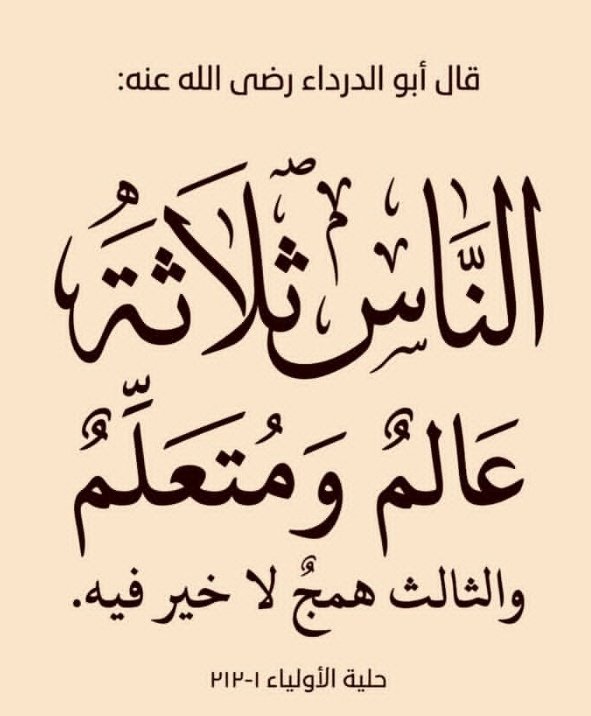 قال أبو الدرداء رضى الله عنه:
النَّاس ثَلَاثَةُ
عَالمٌ وَمُتَعَلِّمٌ
والثالث همجٌ لا خير فيه.
حلية الأولياء ١-٢١٢